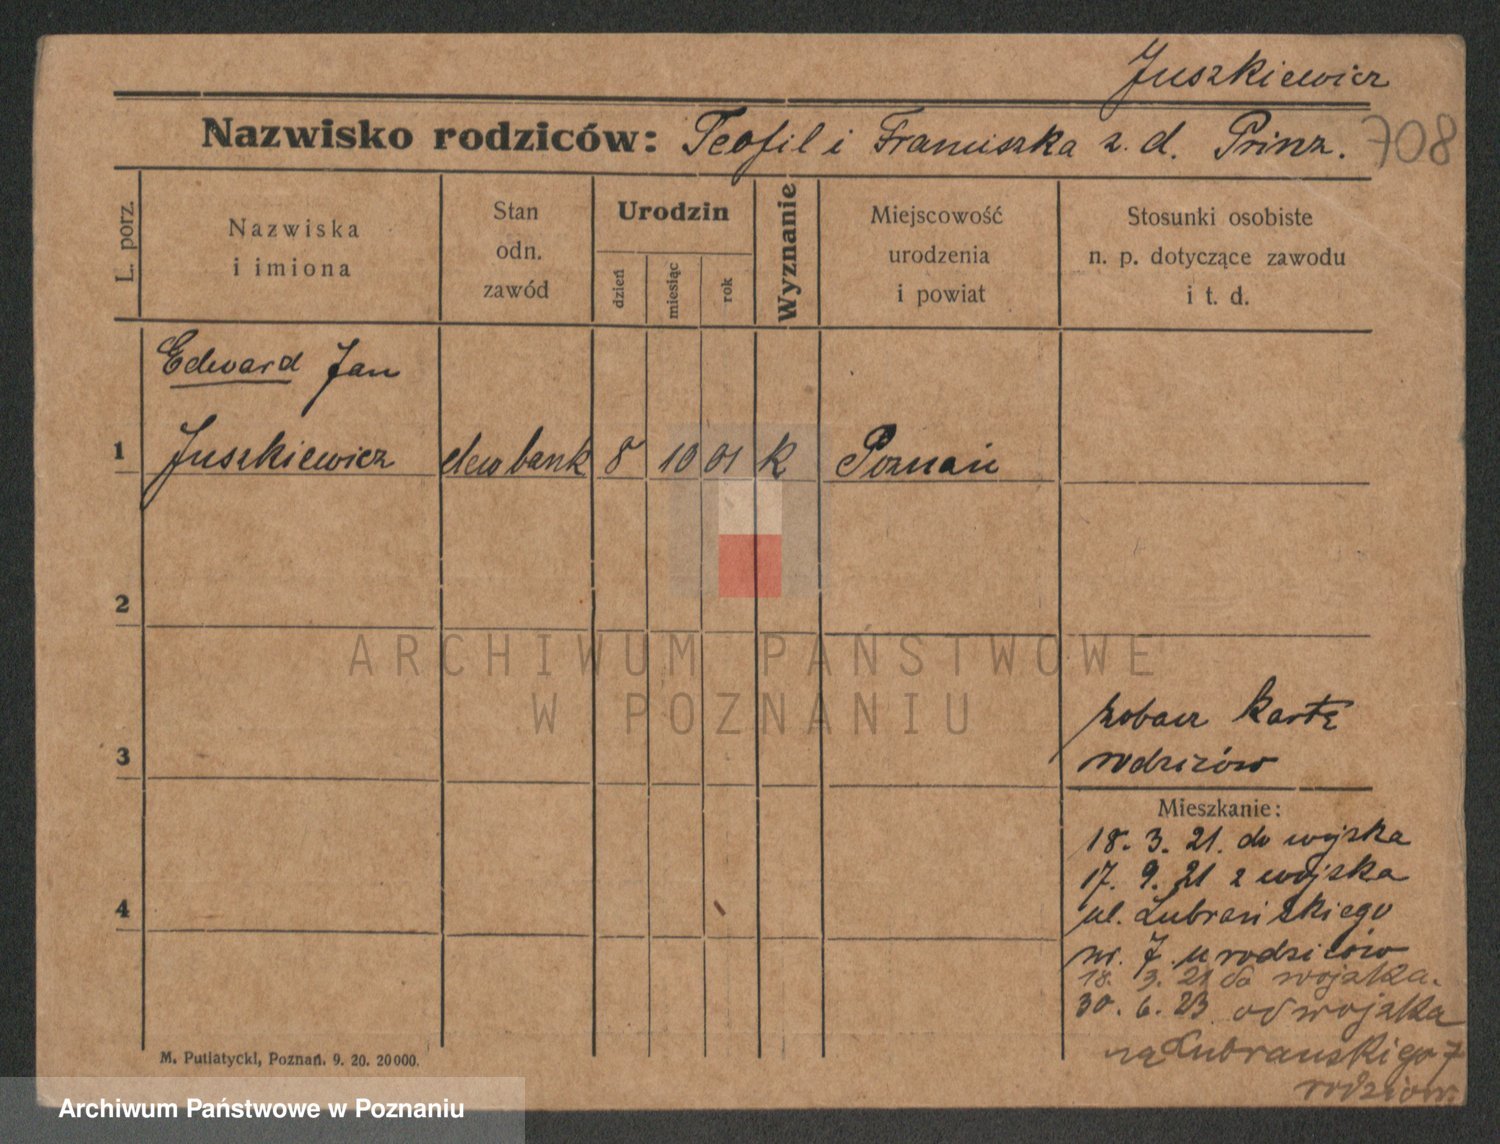 Juszkiewicz
Nazwisko rodziców: Teofil i Franciszka z. d. Prinz. 708
L. porz.
Nazwiska
i imiona
Stan
odn.
zawód
Urodzin
dzień
miesiąc
rok
Wyznanie
Miejscowość
urodzenia
i powiat
Stosunki osobiste
n. p. dotyczące zawodu
i t. d.
Edward Jan
1 Juszkiewicz elew bank 8 10 01 k Poznań
2
ARCHIWUM PAŃSTWOWE
W POZNANIU
zobacz kartę
3 rodziców
Mieszkanie:
18. 3. 21. do wojska
17. 9. 21 z wojska
4 ul. Lubrańskiego
nr. 7 u rodziców
18. 3. 21 do wojska.
30. 6. 23 od wojska
na Lubrańskiego 7
rodziców.
M. Putiatycki, Poznań. 9. 20. 20000.
Archiwum Państwowe w Poznaniu